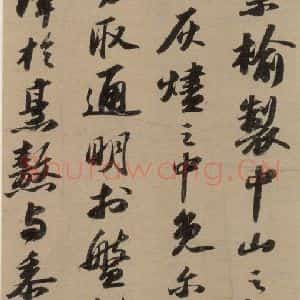 桑榆製中山之
灰燼之中免尔
取通明於盤
澤於烹熬与黍
shufawang.CN